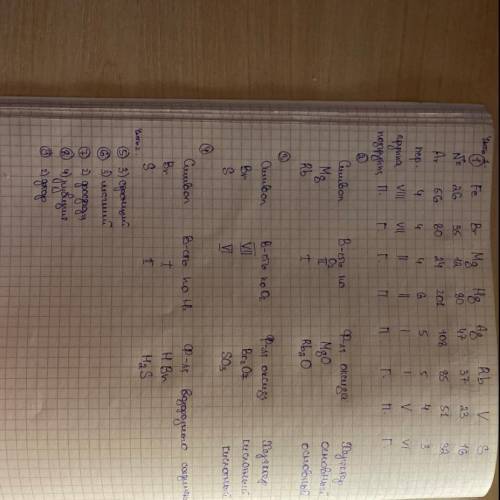 Часть 1.
① Fe Br Mg Hg Ag Rb V S
№ 26 35 12 80 47 37 23 16
Ar 56 80 24 201 108 85 51 32
пер. 4 4 4 6 5 5 4 3
группа VIII VII II II I I V VI
подгруппа П. Г Г П П Г. П. Г.
② Символ В-сть по O₂ Ф-ла оксида Хар-тер
Mg II MgO основный
Rb I Rb₂O основный
③ Символ В-сть по O₂ Ф-ла оксида Хар-тер
Br VII Br₂O₇ кислотный
S VI SO₃ кислотный
④ Символ В-сть по H₂ Ф-ла водородного
Br I HBr
S I H₂S
Часть 2.
⑤ 3)
⑥ 3)
⑦ 2)
⑧ 4) рубидия
⑨ 2) фтор